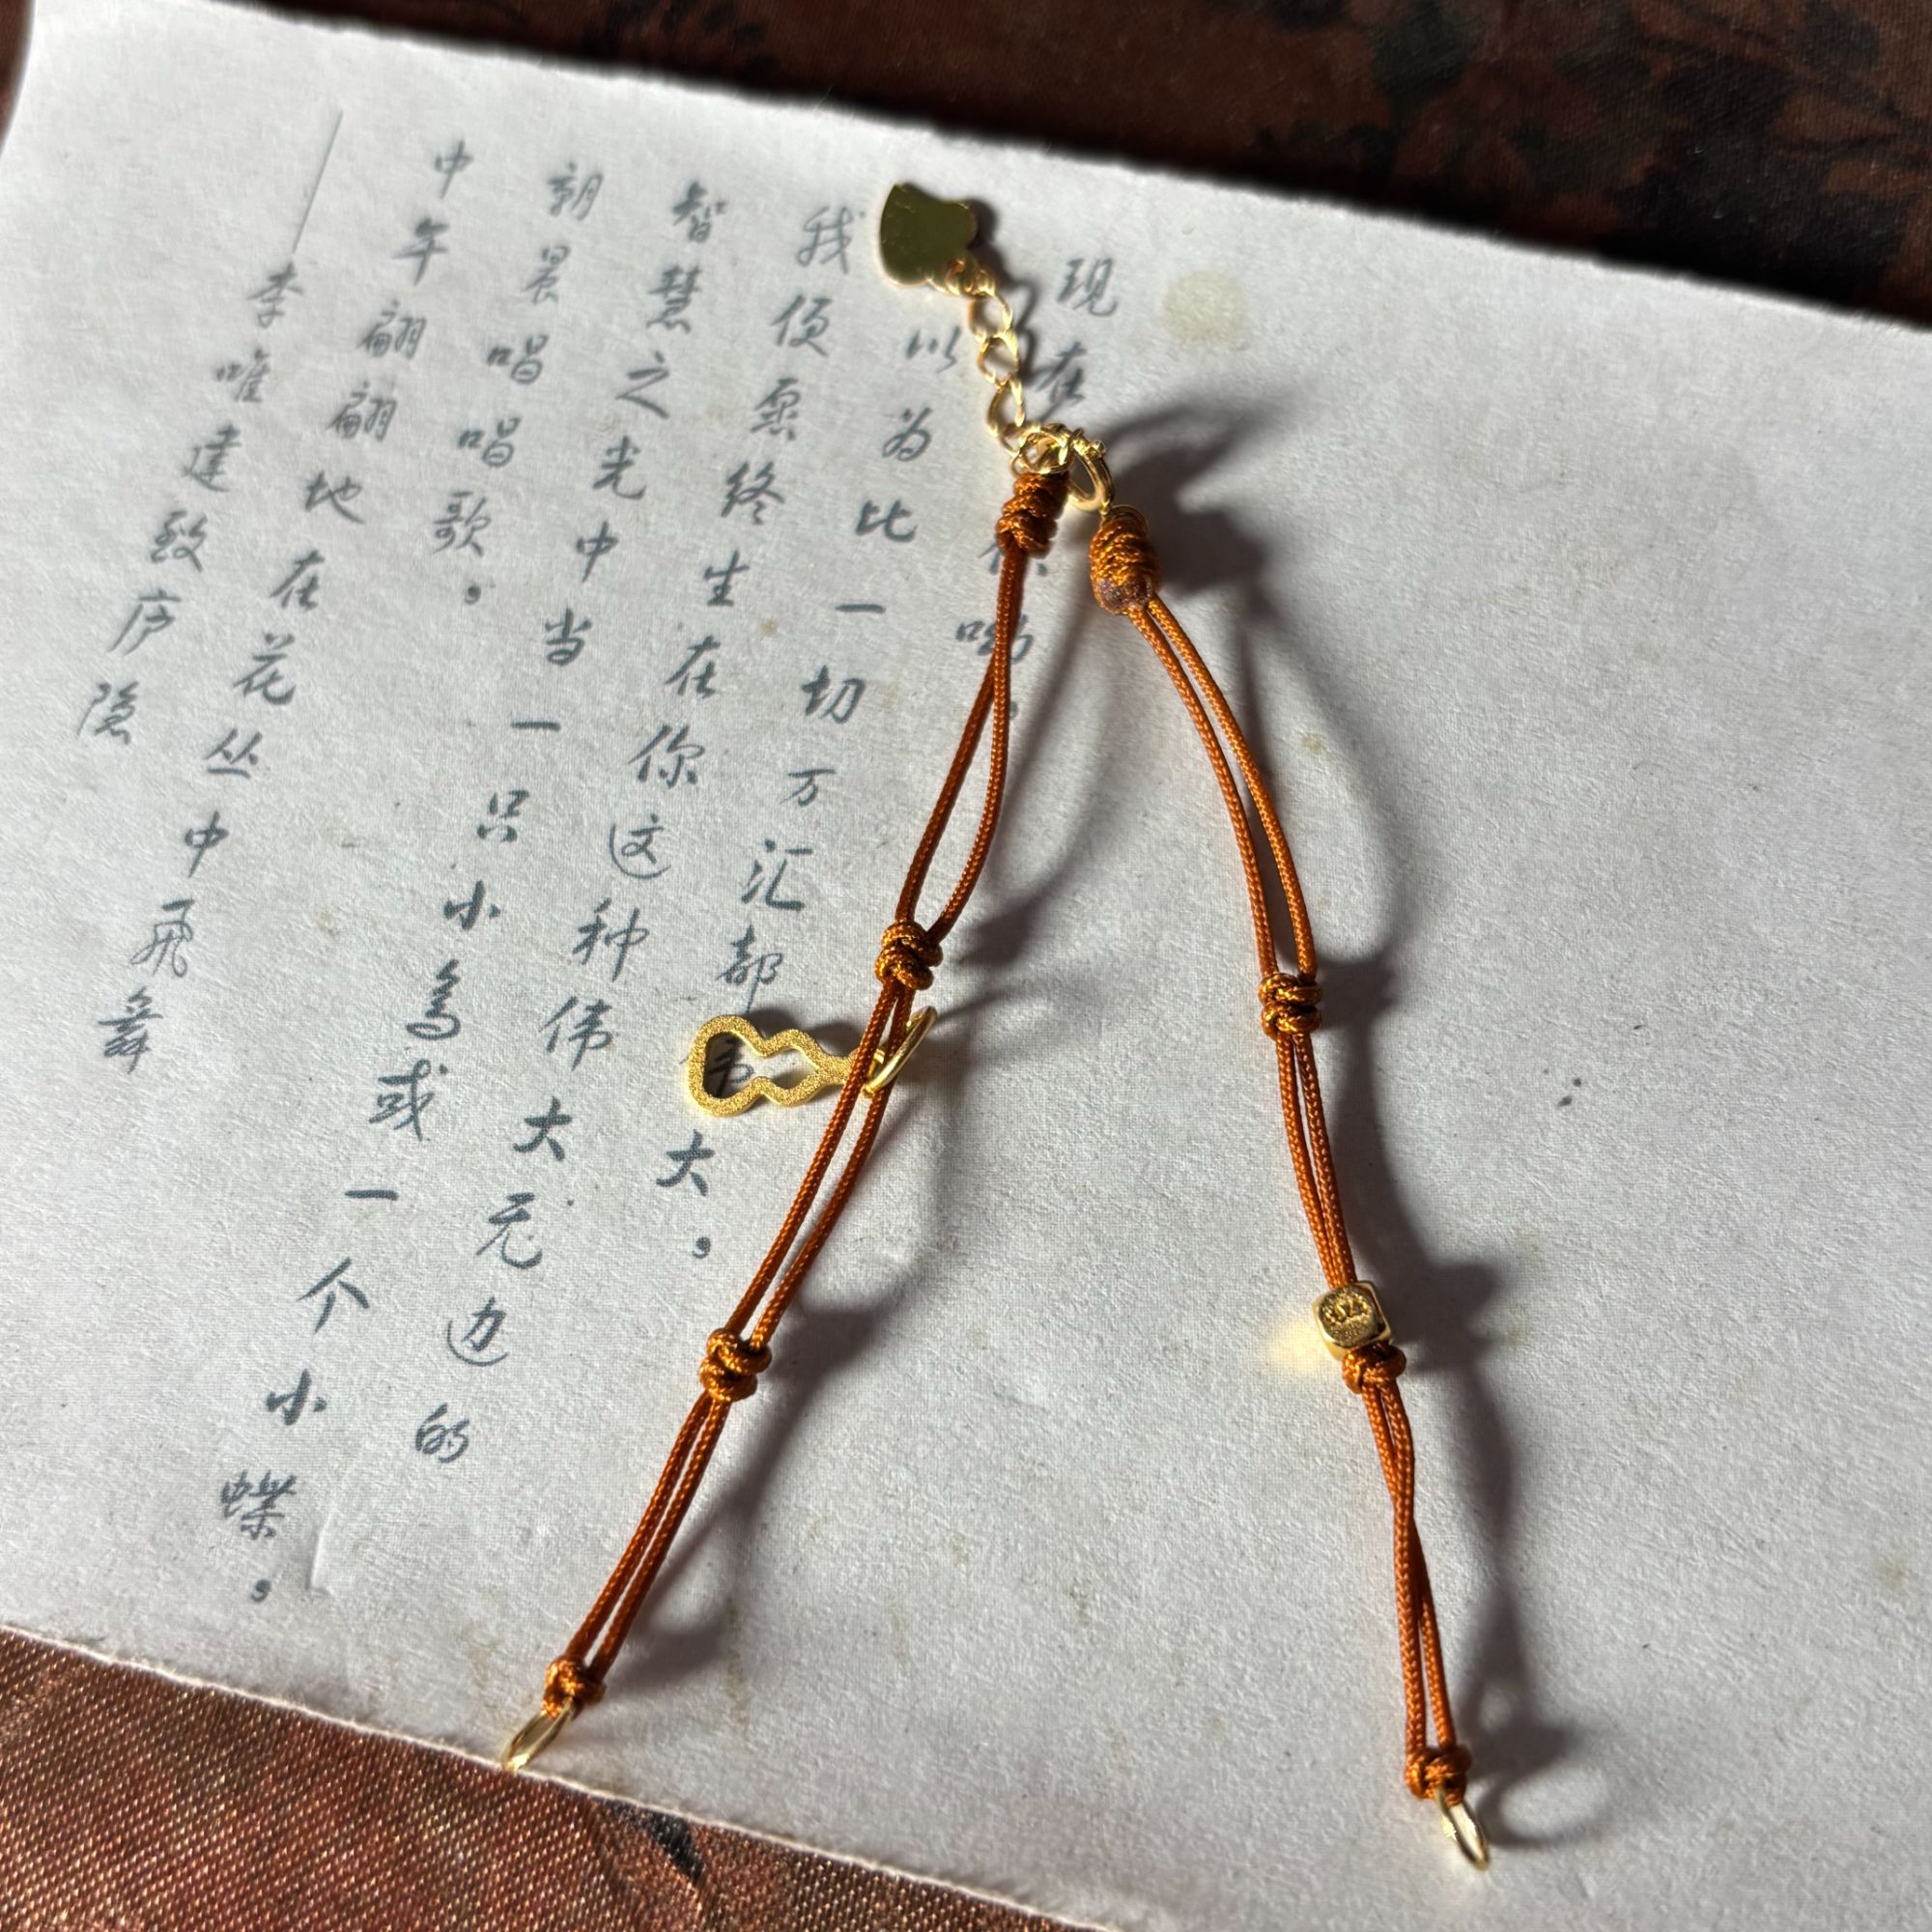 现在哟，
以为比一切万汇都大，
我便愿终生在你这种伟大无边的
智慧之光中当一只小鸟或一个小蝶，
朝晨唱唱歌，
中午翩翩地在花丛中飞舞
——李唯建致庐隐